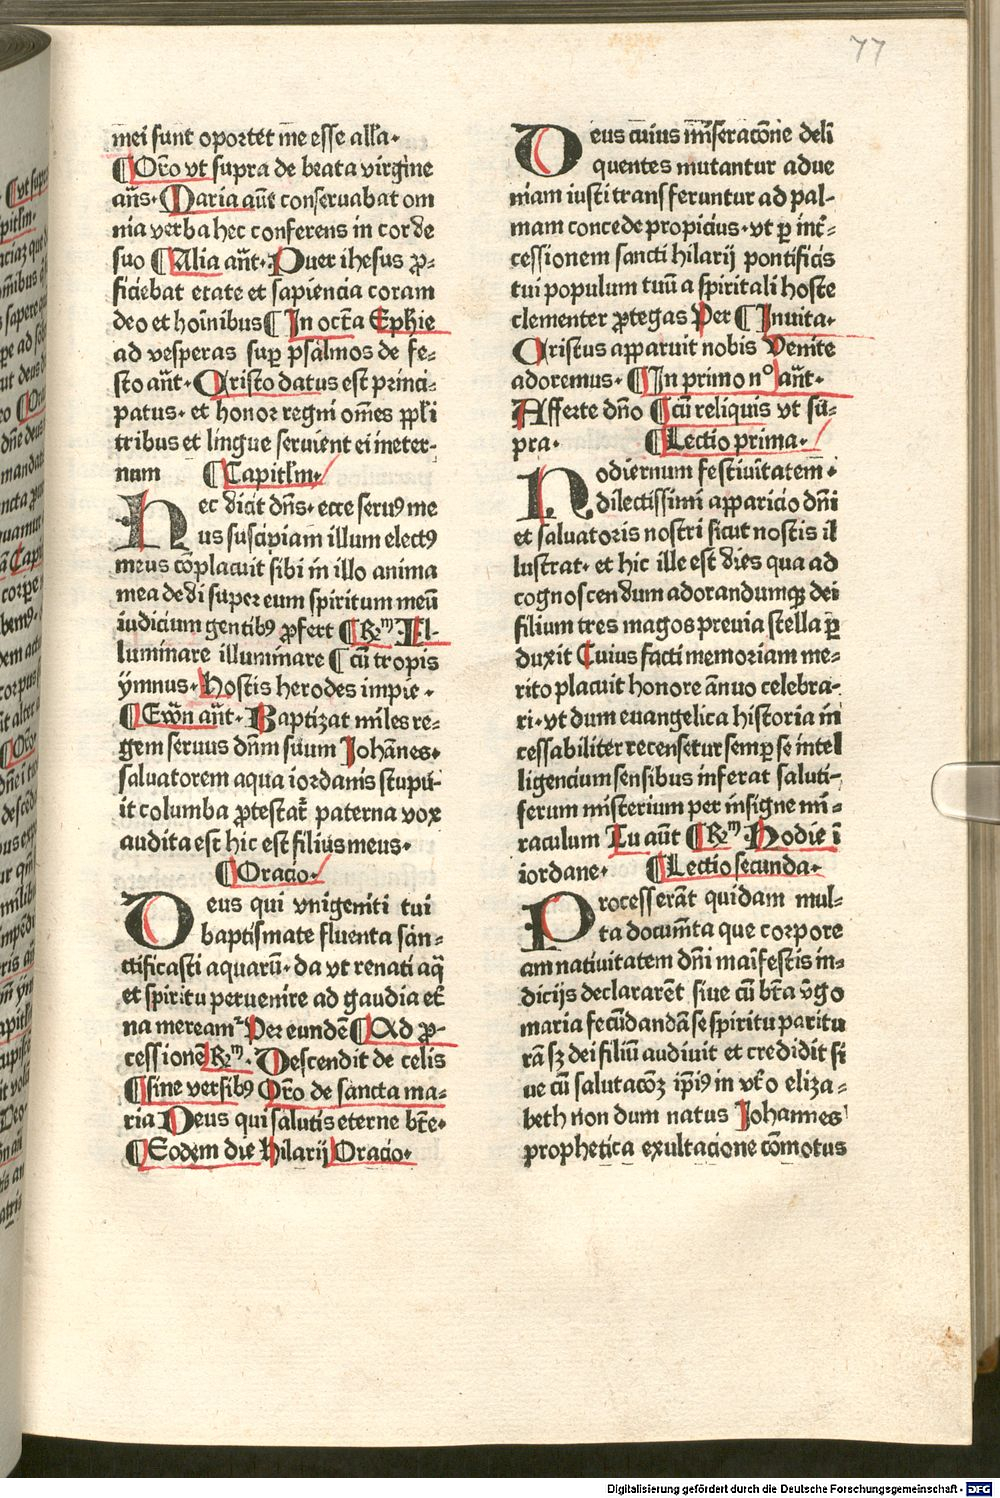 77
mei sunt oportet me esse alľa·
¶Oro̅ vt supra de beata virgine
an̅s· Maria au̅t conseruabat om
nia verba hec conferens in corde
suo ¶Alia an̅t· Puer ihesus p̱ro-
ficiebat etate et sapiencia coram
deo et hoi̅nibus ¶In octa̅ Ephie
ad vesperas sup̱ psalmos de fe-
sto an̅t· Cristo datus est princi-
patus· et honor regni om̅es pp̅li
tribus et lingue seruient ei ineter-
num ¶Capitľm·
Hec dicit dn̅s· ecce seruꝰ me
us suscipiam illum electꝰ
meus co̅placuit sibi in illo anima
mea dedi super eum spiritum meu̅
iudicium gentibꝰ ꝓfert ¶Rm· Il-
luminare illuminare ¶cu̅ tropis
ymnus· Hostis herodes impie·
¶Ewn̅ an̅t· Baptizat miles re-
gem seruus dn̅m suum Joha̅nes·
saluatorem aqua iordanis stupu-
it columba ꝓtestat̅ paterna vox
audita est hic est filius meus·
¶Oracio·
Deus qui vnigeniti tui
baptismate fluenta san-
ctificasti aquaru̅· da vt renati aq̅
et spiritu peruenire ad gaudia et̅
na mereamᷣ Per eunde̅ ¶Ad ꝓ-
cessione̅ Rm· Descendit de celis
¶sine versibꝰ Oro̅ de sancta ma-
ria Deus qui salutis eterne bt̅e·
¶Eodem die hilarij Oracio·
Deus cuius mi̅seraco̅ne deli
quentes mutantur adue
niam iusti transferuntur ad pal-
mam concede propicius· vt ꝑ int̅-
cessionem sancti hilarij pontificis
tui populum tuu̅ a spiritali hoste
clementer ꝓtegas Per ¶Inuita·
Cristus apparuit nobis Venite
adoremus· ¶In primo no an̅t·
Afferte dn̅o ¶cu̅ reliquis vt su-
pra· ¶Lectio prima·
Hodiernum festiuitatem·
dilectissimi apparicio dn̅i
et saluatoris nostri sicut nostis il
lustrat· et hic ille est dies qua ad
cognoscendum adorandumqꝫ dei
filium tres magos preuia stella ꝑ
duxit Cuius facti memoriam me-
rito placuit honore a̅nuo celebra-
ri· vt dum euangelica historia in
cessabiliter recensetur semꝑ se intel
ligencium sensibus inferat saluti-
ferum misterium per insigne mi-
raculum Tu aut̅ ¶Rm· Hodie i̅
iordane· ¶Lectio secunda·
Processera̅t quidam mul-
ta docum̅ta que corpore
am natiuitatem dn̅i mai̅festis in-
dicijs declarare̅t siue cu̅ bt̅a v̅go
maria fecu̅danda̅ se spiritu paritu
ra̅ sꝫ dei filiu̅ audiuit et credidit si
ue cu̅ salutaco̅ꝫ ip̅iꝰ in vt̅o eliza-
beth non dum natus Johannes
prophetica exultacione co̅motus
Digitalisierung gefördert durch die Deutsche Forschungsgemeinschaft - DFG